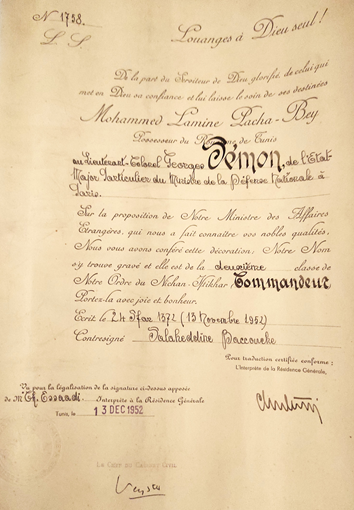 N° 1758.
L. S.
Louanges à Dieu seul!
De la part du Serviteur de Dieu glorifié, de celui qui
met en Dieu sa confiance et lui laisse le soin de ses destinées
Mohammed Lamine Pacha-Bey
Possesseur du Royaume de Tunis
au Lieutenant-Colonel Georges Pémon, de l'Etat-
Major Particulier du Ministre de la Défense Nationale à
Paris.
Sur la proposition de Notre Ministre des Affaires
Etrangères, qui nous a fait connaître vos nobles qualités,
Nous vous avons conféré cette décoration. Notre Nom
s'y trouve gravé et elle est de la deuxième classe de
Notre Ordre du Nichan-Iftikhar Commandeur
Portez-la avec joie et bonheur.
Ecrit le 24 Sfar 1372 (13 Novembre 1952)
Contresigné Salaheddine Baccouche
Pour traduction certifiée conforme:
L'Interprète de la Résidence Générale,
Vu pour la légalisation de la signature ci-dessus apposée
de M. Essaadi Interprète à la Résidence Générale
Tunis, le 13 DEC 1952